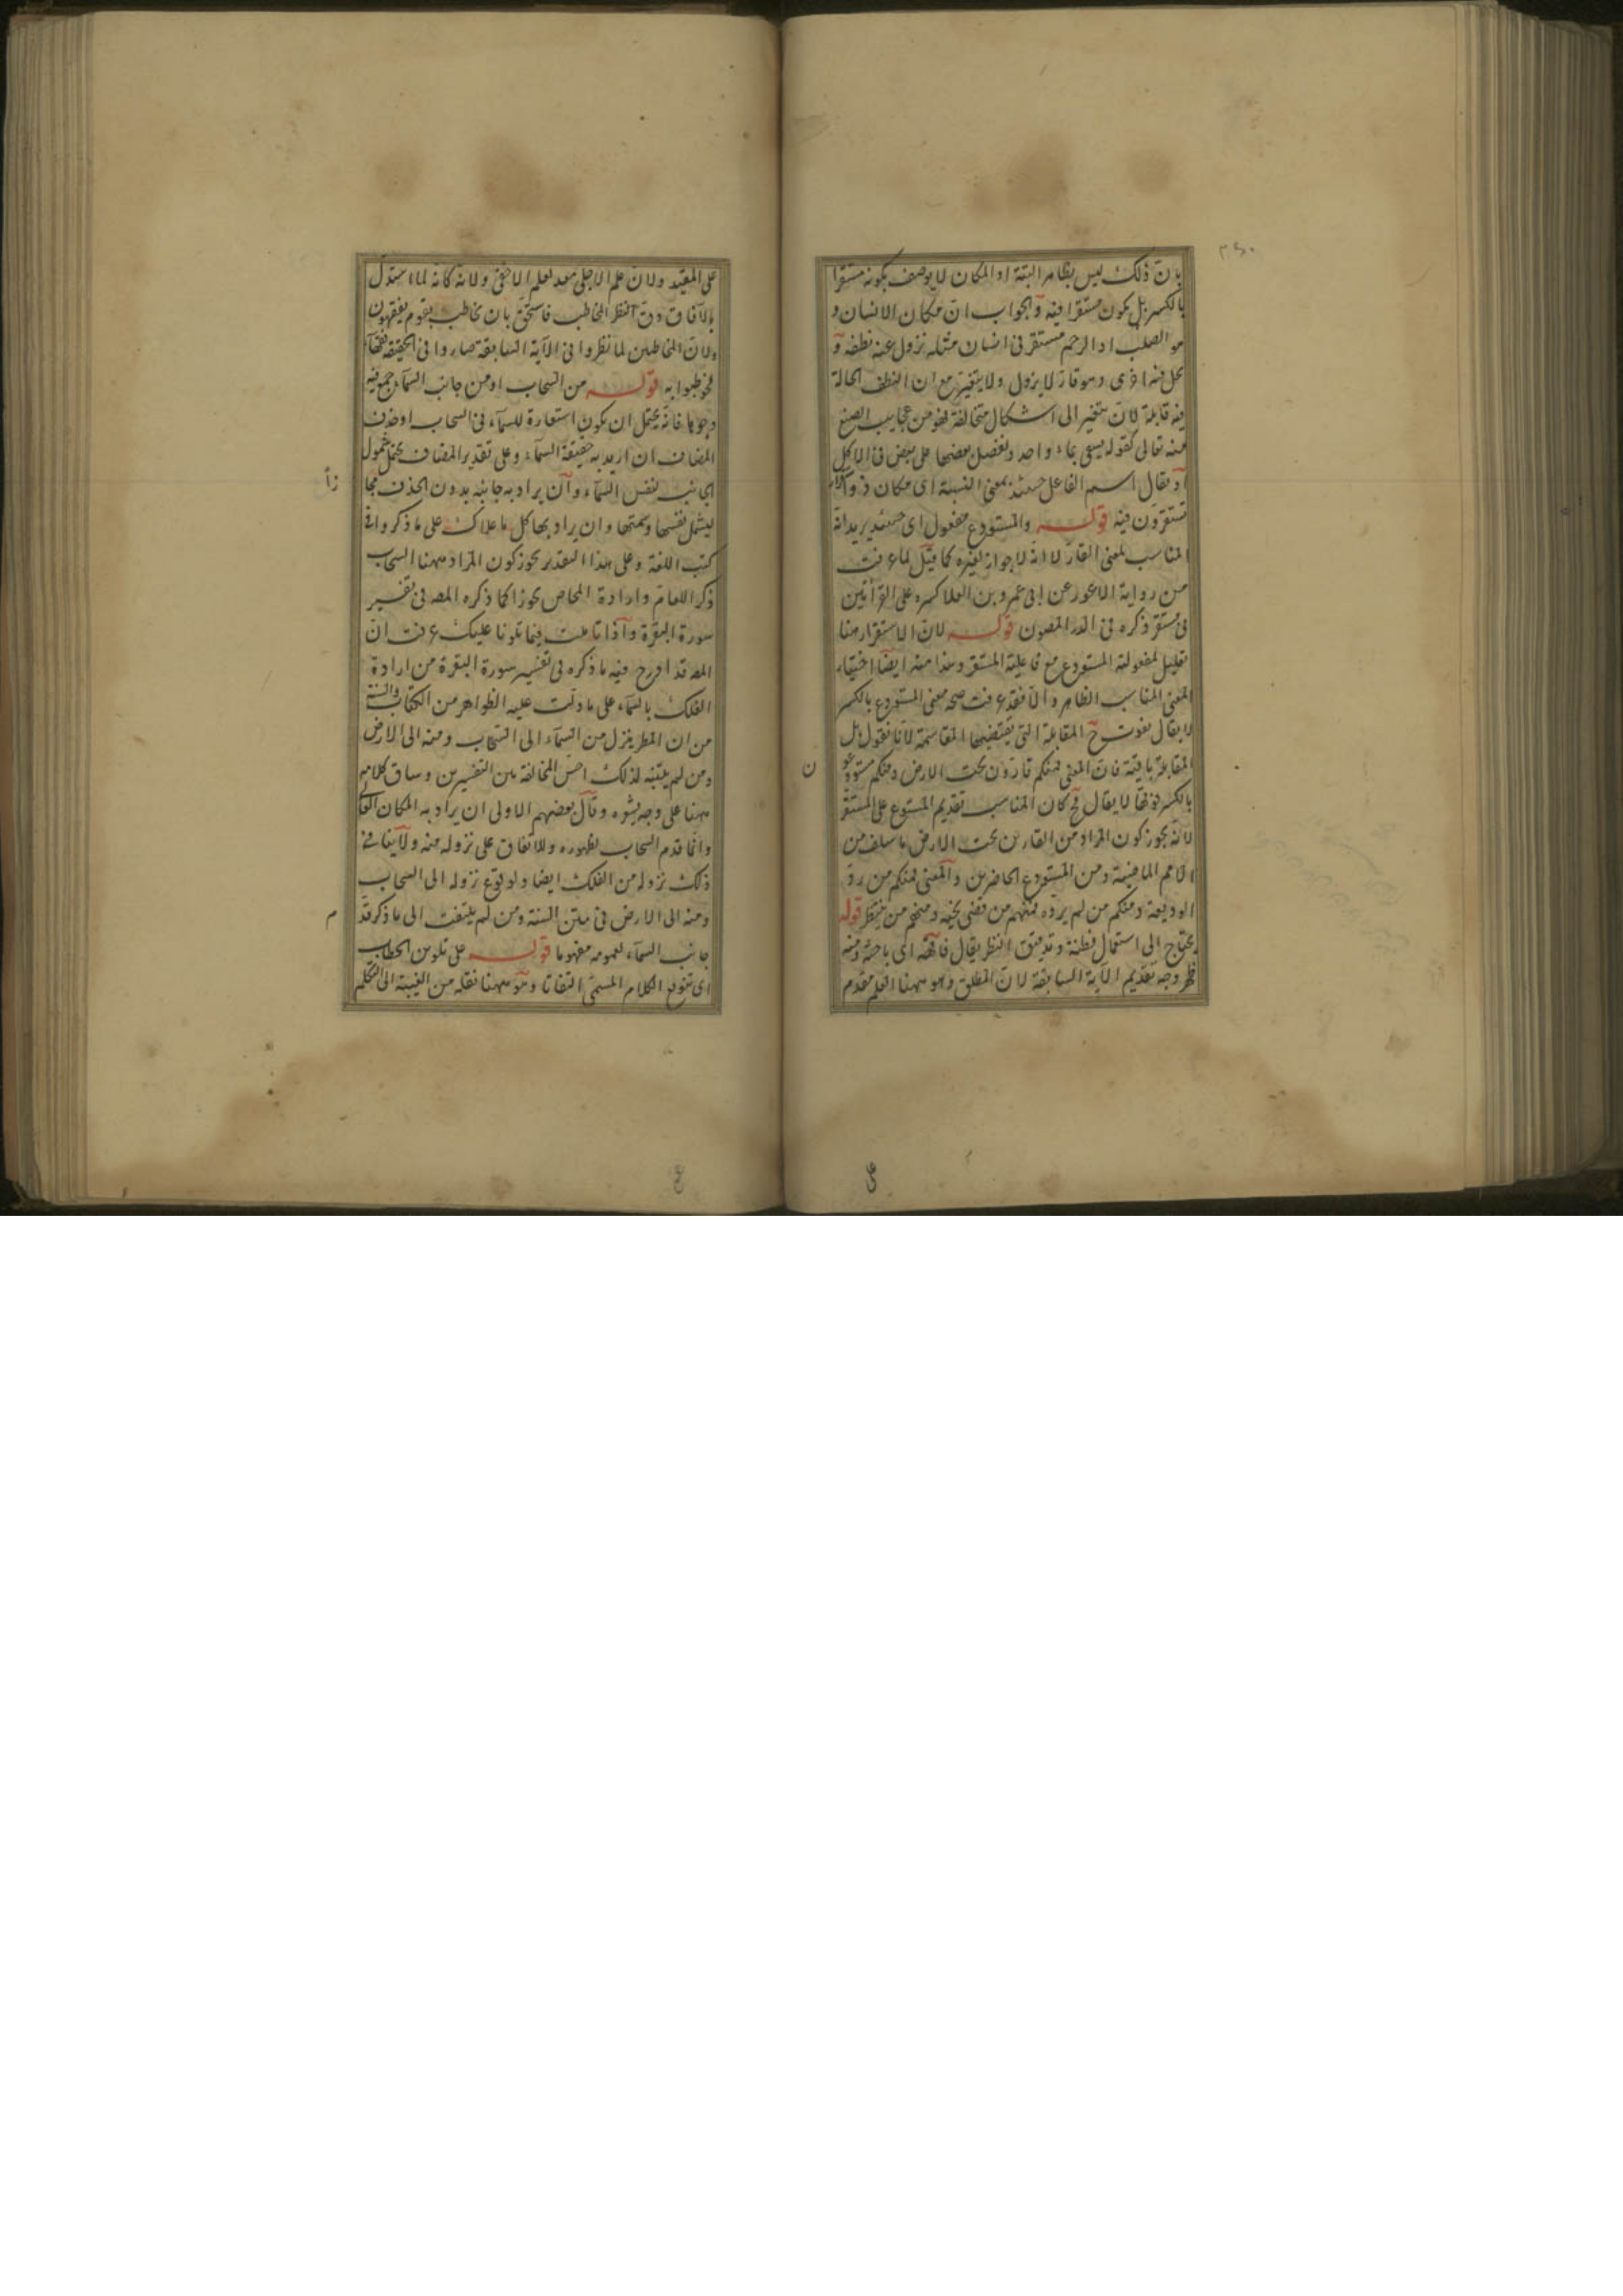 بان ذلك ليس بظاهر البتة اذ المكان لا يوصف بكونه مستقرا
بالكسر بل يكون مستقرا فيه والجواب ان مكان الانسان و
هو الصلب او الرحم مستقر في انسان مثله نزول عنه نطفه و
يحل فيه اخرى وهو قار لا يزول ولا يتغير مع ان النطف الحالة
فيه قابلة لان تتغير الى اشكال متخالفة فهو من عجايب الصنع
منه تعالى كقوله يسقى بماء واحد ونفضل بعضها على بعض في الاكل
او يقال اسم الفاعل حينئذ بمعنى النسبة اى مكان ذو
تستقرون فيه قوله والمستودع مفعول اى حينئذ يريد انه
المناسب لمعنى القار لا انه لا جواز لغيره كما قيل لما عرفت
من رواية الاعور عن ابى عمرو بن العلا كسره على القرأتين
فى مستقر ذكره فى الدر المصون قوله لان الاستقرار منا
تعليل لمفعولية المستودع مع فاعلية المستقر وهذا منه ايضا اختيار
المعنى المناسب الظاهر والا فقد عرفت صحه معنى المستودع بالكسر
لا يقال تفوت ح المقابلة التى يقتضيها المقاسمة لانا نقول بل
المقابلة باقية فان المعنى فمنكم قارون تحت الارض ومنكم مستودعو
ن
بالكسر فوقها لا يقال فح كان المناسب تقديم المستودع على المستقر
لانه يجوز كون المراد من القارين تحت الارض ما سلف من
الامم الماضية ومن المستودع الحاضرين والمعنى فمنكم من رد
الوديعة ومنكم من لم يرده فمنهم من قضى نحبه ومنهم من ينتظر قوله
يحتاج الى استعمال فطنة وتدقيق النظر يقال فاقهه اى باحثه ومنه
ظهر وجه تقديم الآية السابقة لان المطلق وهو ههنا العلم مقدم
على
على المقيد ولان علم الاجلى معد لعلم الاخفى ولانه كانه لما استدل
بالآفاق دق النظر المخاطب فاستحق بان يخاطب بقوم يفقهون
ولان المخاطبين لما نظروا فى الآية السابقة صاروا فى الحقيقة فقهآء
فخوطبوا به قوله من السحاب او من جانب السمآء جمع فيه
وجوها فانه يحتمل ان يكون استعارة للسمآء فى السحاب او حذف
المضاف ان اريد به حقيقة السمآء وعلى تقدير المضاف يحتمل شمول
الجانب لنفس السمآء وان يراد به جانبه بدون الحذف مجا
زاً
ليشمل نفسها وسمتها وان يراد بها كل ما علاك على ما ذكروا فى
كتب اللغة وعلى هذا التقدير يجوز كون المراد ههنا السحاب
ذكر اللعام وارادة الخاص تجوزا كما ذكره المصه فى تفسير
سورة البقرة واذا تاملت فيما تلونا عليك عرفت ان
المصه قد ادرج فيه ما ذكره فى تفسير سورة البقرة من ارادة
الفلك بالسمآء على ما دلت عليه الظواهر من الكتاب والسنة
من ان المطر ينزل من السمآء الى السحاب ومنه الى الارض
ومن لم يتنبه لذلك احس المخالفة بين التفسيرين وساق كلامه
ههنا على وجه يشوه وقال بعضهم الاولى ان يراد به المكان العا
وانما قدم السحاب لظهوره وللاتفاق على نزوله منه ولا ينافى
ذلك نزوله من الفلك ايضا ولو بوقوع نزوله الى السحاب
ومنه الى الارض فى متن السنة ومن لم يلتفت الى ما ذكر قد
م
جانب السمآء لعمومه مفهوما قوله على تلوين الخطاب
اى تنويع الكلام المسمى التفاتا وهو ههنا نقله من الغيبة الى التكلم